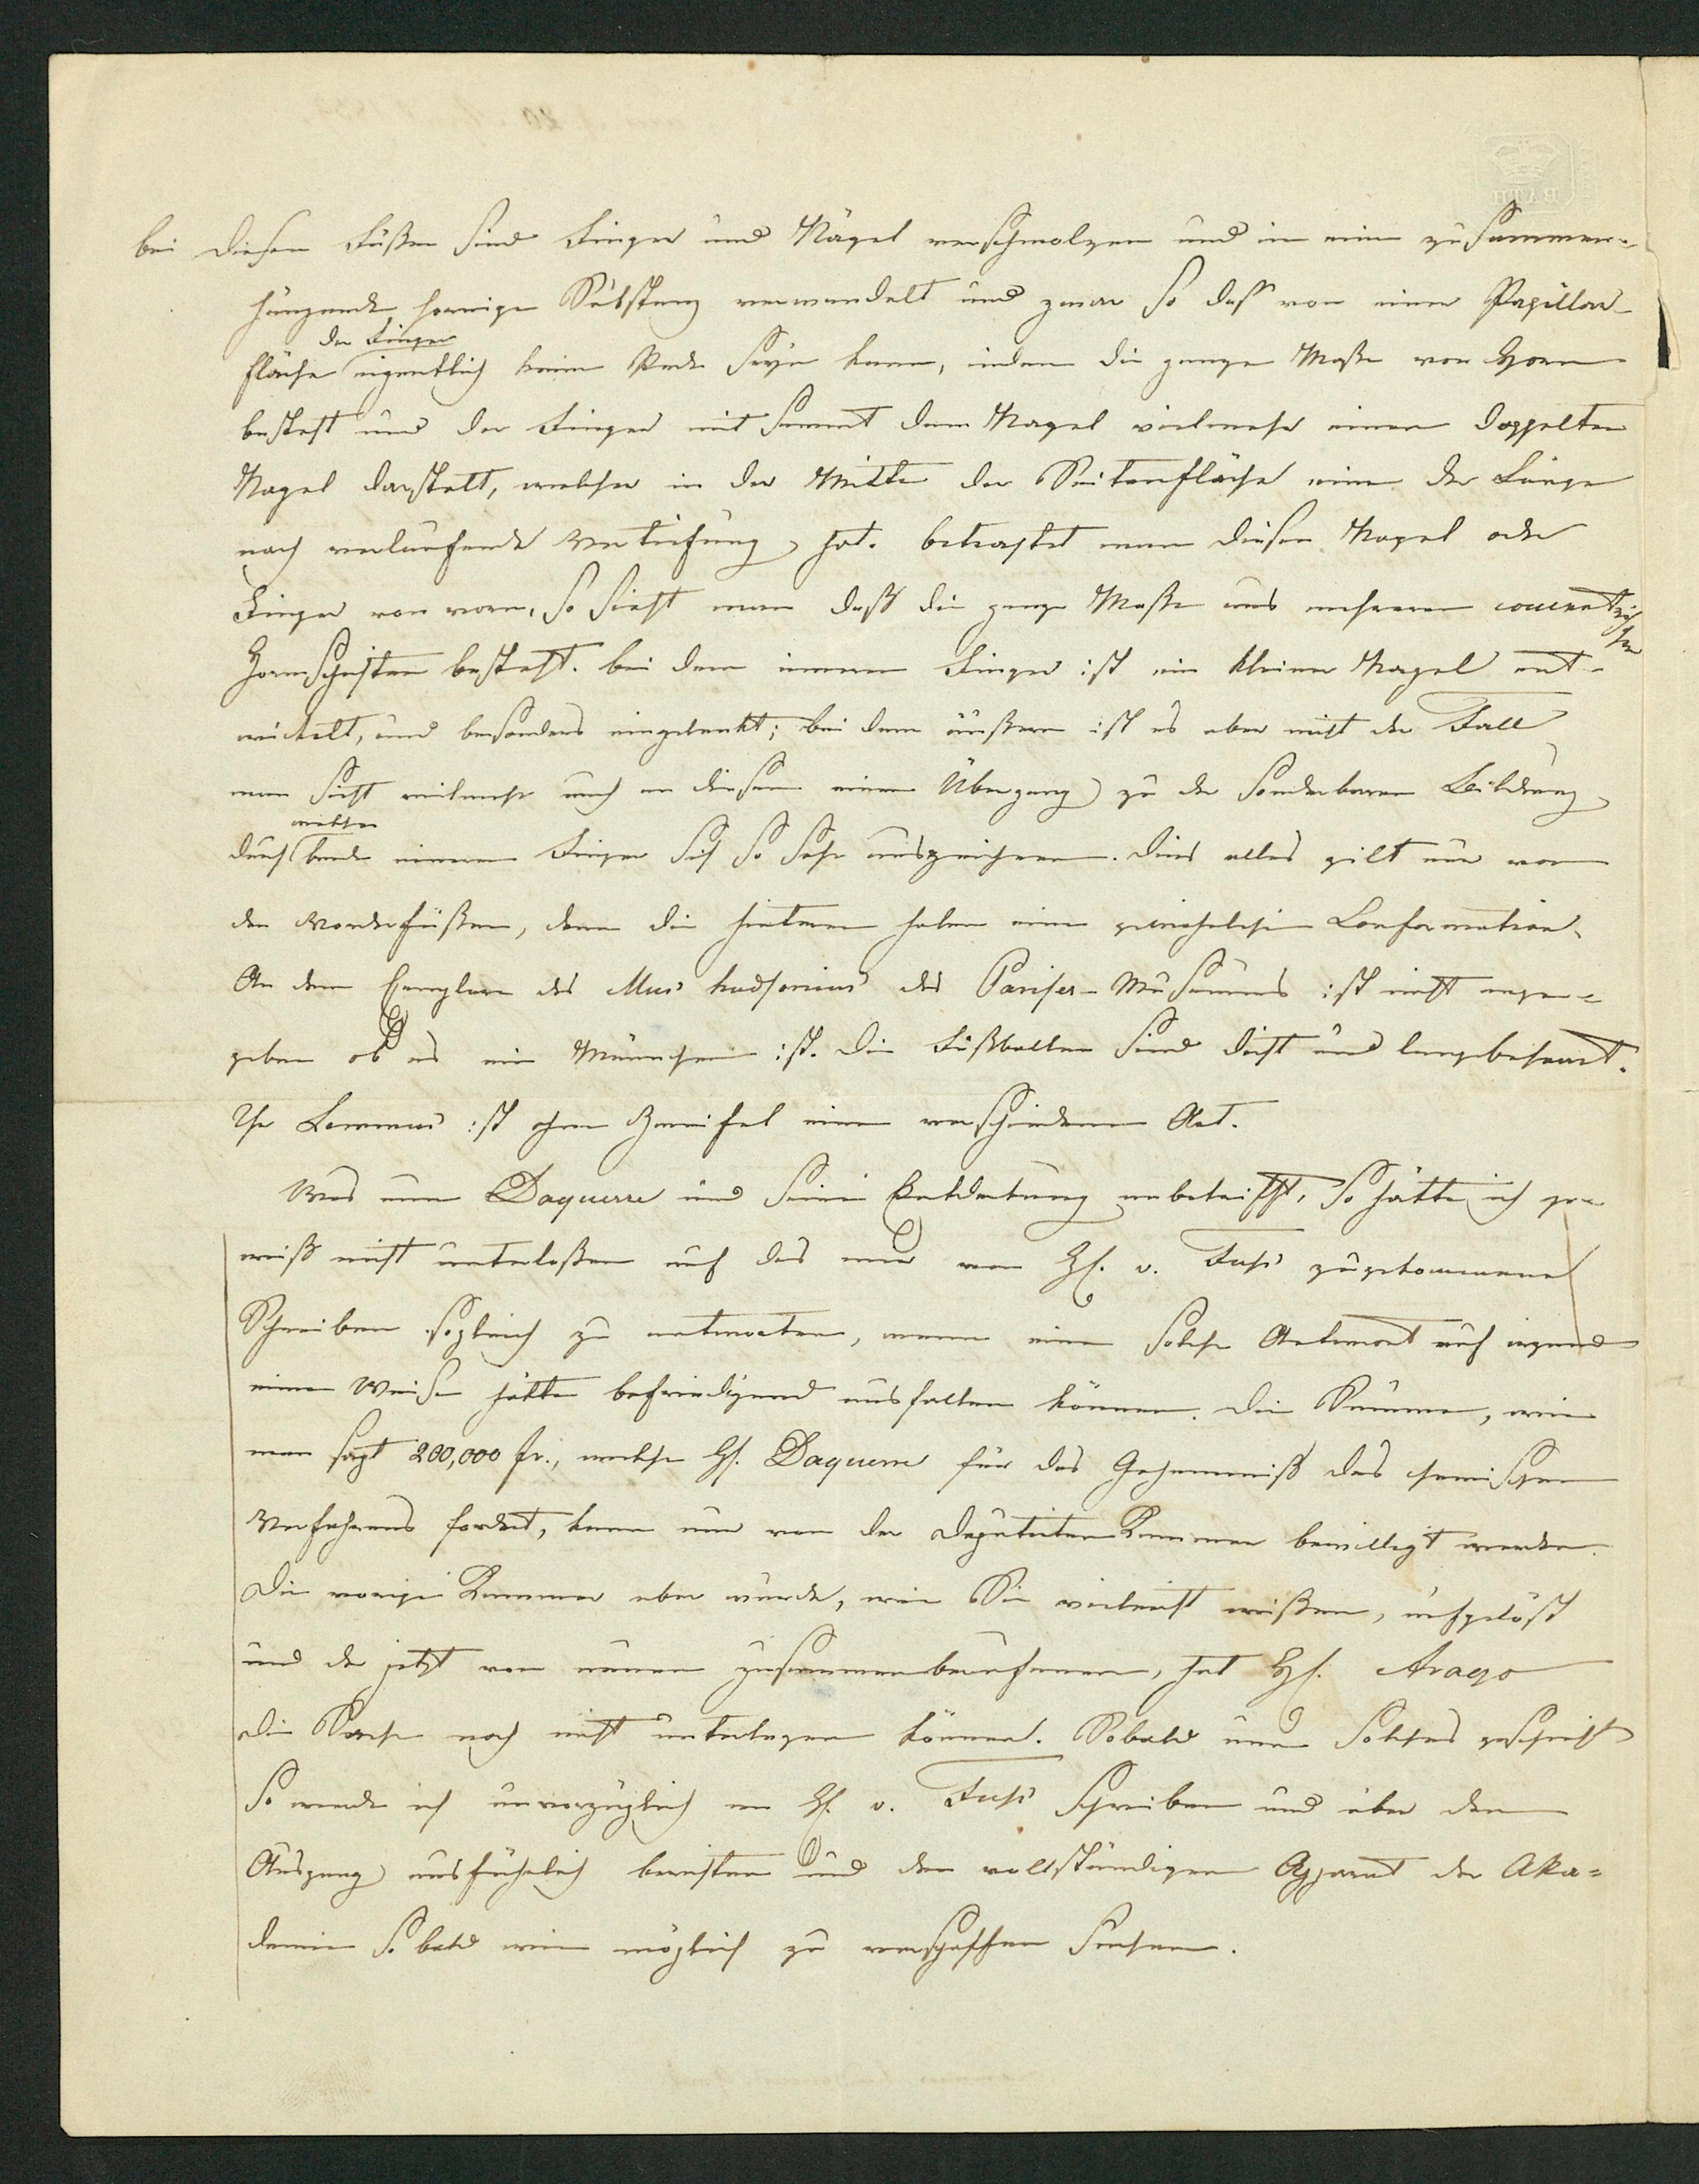 bei diesen Füßen sind Finger und Nägel verschmolzen und in eine zusammen-
hängende hornige Substanz verwandelt und zwar so daß von einer Papillar-
der Finger
fläche eigentlich keine Rede seyn kann, indem die ganze Maße von Horn
besteht und der Finger mit sammt dem Nagel vielmehr einen doppelten
Nagel darstellt, welcher in der Mitte der Seitenfläche eine der Länge
nach verlaufende Vertiefung hat. betrachtet man diesen Nagel oder
Finger von vorn, so sieht man daß die ganze Maße aus mehreren concentrischen
Hornschichten besteht. bei dem innern Finger ist ein kleiner Nagel ent-
wickelt, und besonders eingelenkt; bei dem äußern ist es aber nicht der Fall
man sieht vielmehr auch an diesem einen Übergang zu der sonderbaren Bildung
welcher
durch beide Finger sich so sehr auszeichnen. dies alles gilt nur von
den Vorderfüßen, denn die hintern haben eine gewöhnliche Conformation.
An dem Exemplare des Mus hudsonius des Pariser-Musäums ist nicht ange-
geben ob es ein Männchen ist. die Fußballen sind dicht und langbehaart.
Ihr Lemmus ist ohne Zweifel eine verschiedene Art.
Was nun Daguerre und seine Entdeckung anbetrifft, so hätte ich ge-
wiß nicht unterlaßen auf das mir von H. v. Fuss zugekommene
Schreiben sogleich zu antworten, wenn eine solche Antwort auf irgend
eine Weise hätte befriedigend ausfallen können. die Summe, wie
man sagt 200,000 fr., welche H. Daguerre für das Geheimniß des chemischen
Verfahrens fordert, kann nur von der Deputirten Kammer bewilligt werden.
die vorige Kammer aber wurde, wie Sie vielleicht wißen, aufgelößt
und der jetzt von neuem zusammenberufenen, hat H. Arago
die Sache noch nicht unterlegen können. Sobald nun solches geschieht
so werde ich unverzüglich an H. v. Fuss schreiben und über den
Ausgang ausführlich berichten und den vollständigen Apparat der Aka-
demie so bald wie möglich zu verschaffen suchen.